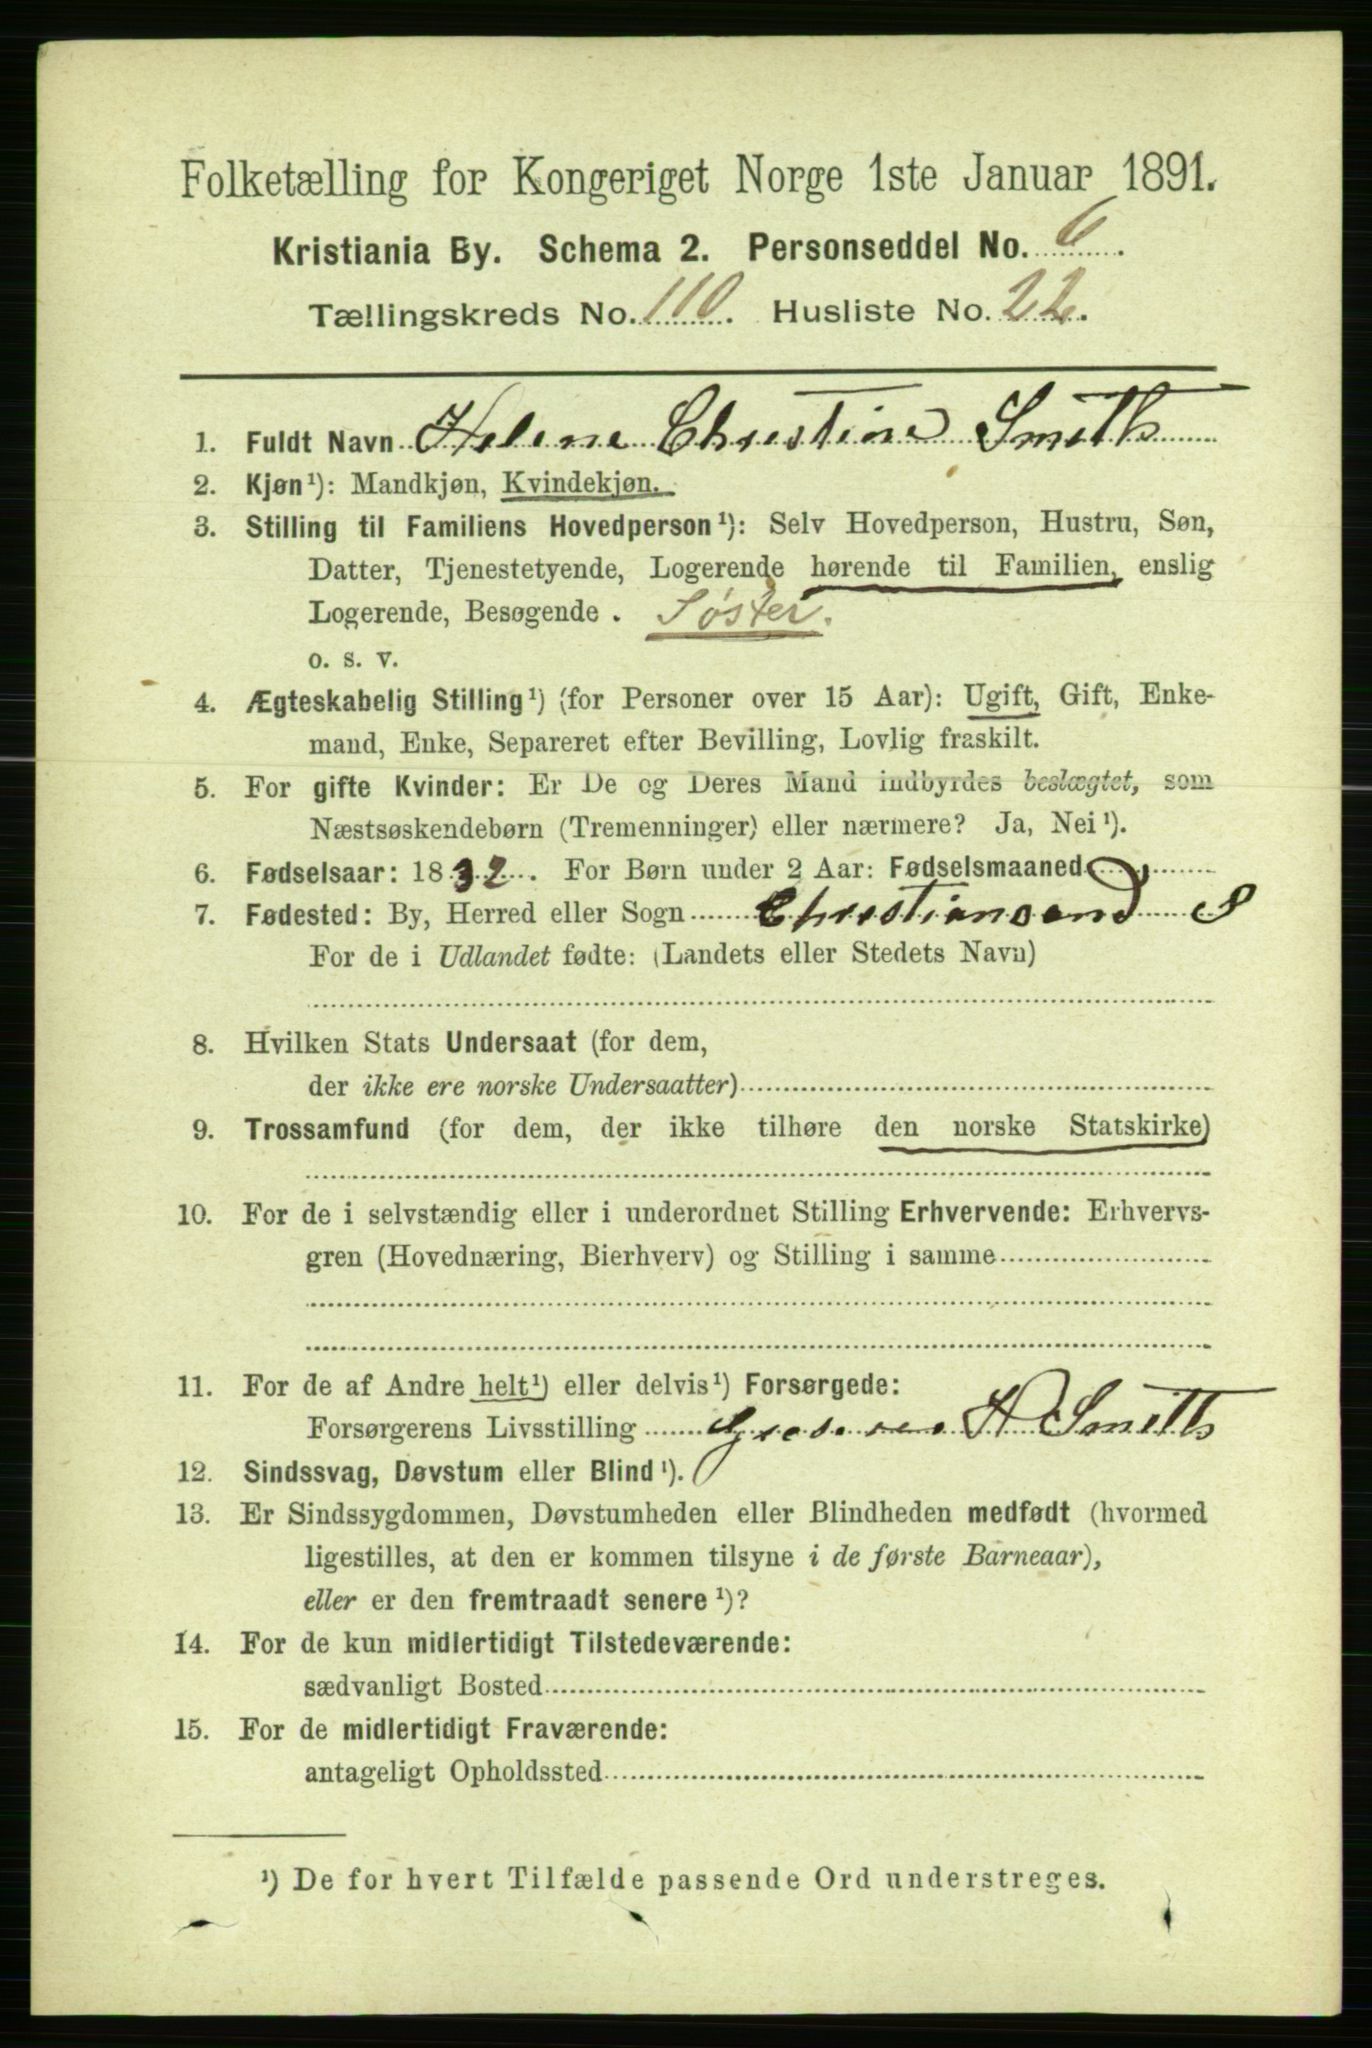 Folketælling for Kongeriget Norge 1ste Januar 1891.
Kristiania By. Schema 2. Personseddel No. 6.
Tællingskreds No. 110. Husliste No. 22.
1. Fuldt Navn Helene Christine Smith
2. Kjøn¹): Mandkjøn, Kvindekjøn.
3. Stilling til Familiens Hovedperson¹): Selv Hovedperson, Hustru, Søn,
Datter, Tjenestetyende, Logerende hørende til Familien, enslig
Logerende, Besøgende . Søster.
o. s. v.
4. Ægteskabelig Stilling¹) (for Personer over 15 Aar): Ugift, Gift, Enke-
mand, Enke, Separeret efter Bevilling, Lovlig fraskilt.
5. For gifte Kvinder: Er De og Deres Mand indbyrdes beslægtet, som
Næstsøskendebørn (Tremenninger) eller nærmere? Ja, Nei¹).
6. Fødselsaar: 1832. For Børn under 2 Aar: Fødselsmaaned
7. Fødested: By, Herred eller Sogn Christiansand S
For de i Udlandet fødte: (Landets eller Stedets Navn)
8. Hvilken Stats Undersaat (for dem,
der ikke ere norske Undersaatter)
9. Trossamfund (for dem, der ikke tilhøre den norske Statskirke)
10. For de i selvstændig eller i underordnet Stilling Erhvervende: Erhvervs-
gren (Hovednæring, Bierhverv) og Stilling i samme
11. For de af Andre helt¹) eller delvis¹) Forsørgede:
Forsørgerens Livsstilling Smith
12. Sindssvag, Døvstum eller Blind¹).
13. Er Sindssygdommen, Døvstumheden eller Blindheden medfødt (hvormed
ligestilles, at den er kommen tilsyne i de første Barneaar),
eller er den fremtraadt senere¹)?
14. For de kun midlertidigt Tilstedeværende:
sædvanligt Bosted
15. For de midlertidigt Fraværende:
antageligt Opholdssted
¹) De for hvert Tilfælde passende Ord understreges.